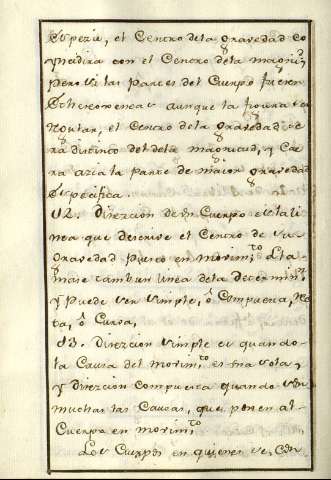 Especie, el Centro dela Gravedad co
yncidira con el Centro dela magnit.
pero si las partes del Cuerpo fueren
Ethereogeneas aunque la figura sea
regular, el Centro dela Gravedad se
ra distinto del dela magnitud, y cae
ra azia la parte de maior gravedad
Especifica.
12. Direzion de un Cuerpo es la li
nea que descrive el Centro de su
Gravedad puesto en movim.to Lla
mase tambien linea dela determin.n
y puede ser simple, ô compuesta, Re
cta, ô Curva.
13. Direzion simple es quando
la Causa del movim.to es una sola,
y direzion compuesta quando son
muchas las Causas, que ponen al
Cuerpo en movim.to
Los Cuerpos en quienes se con